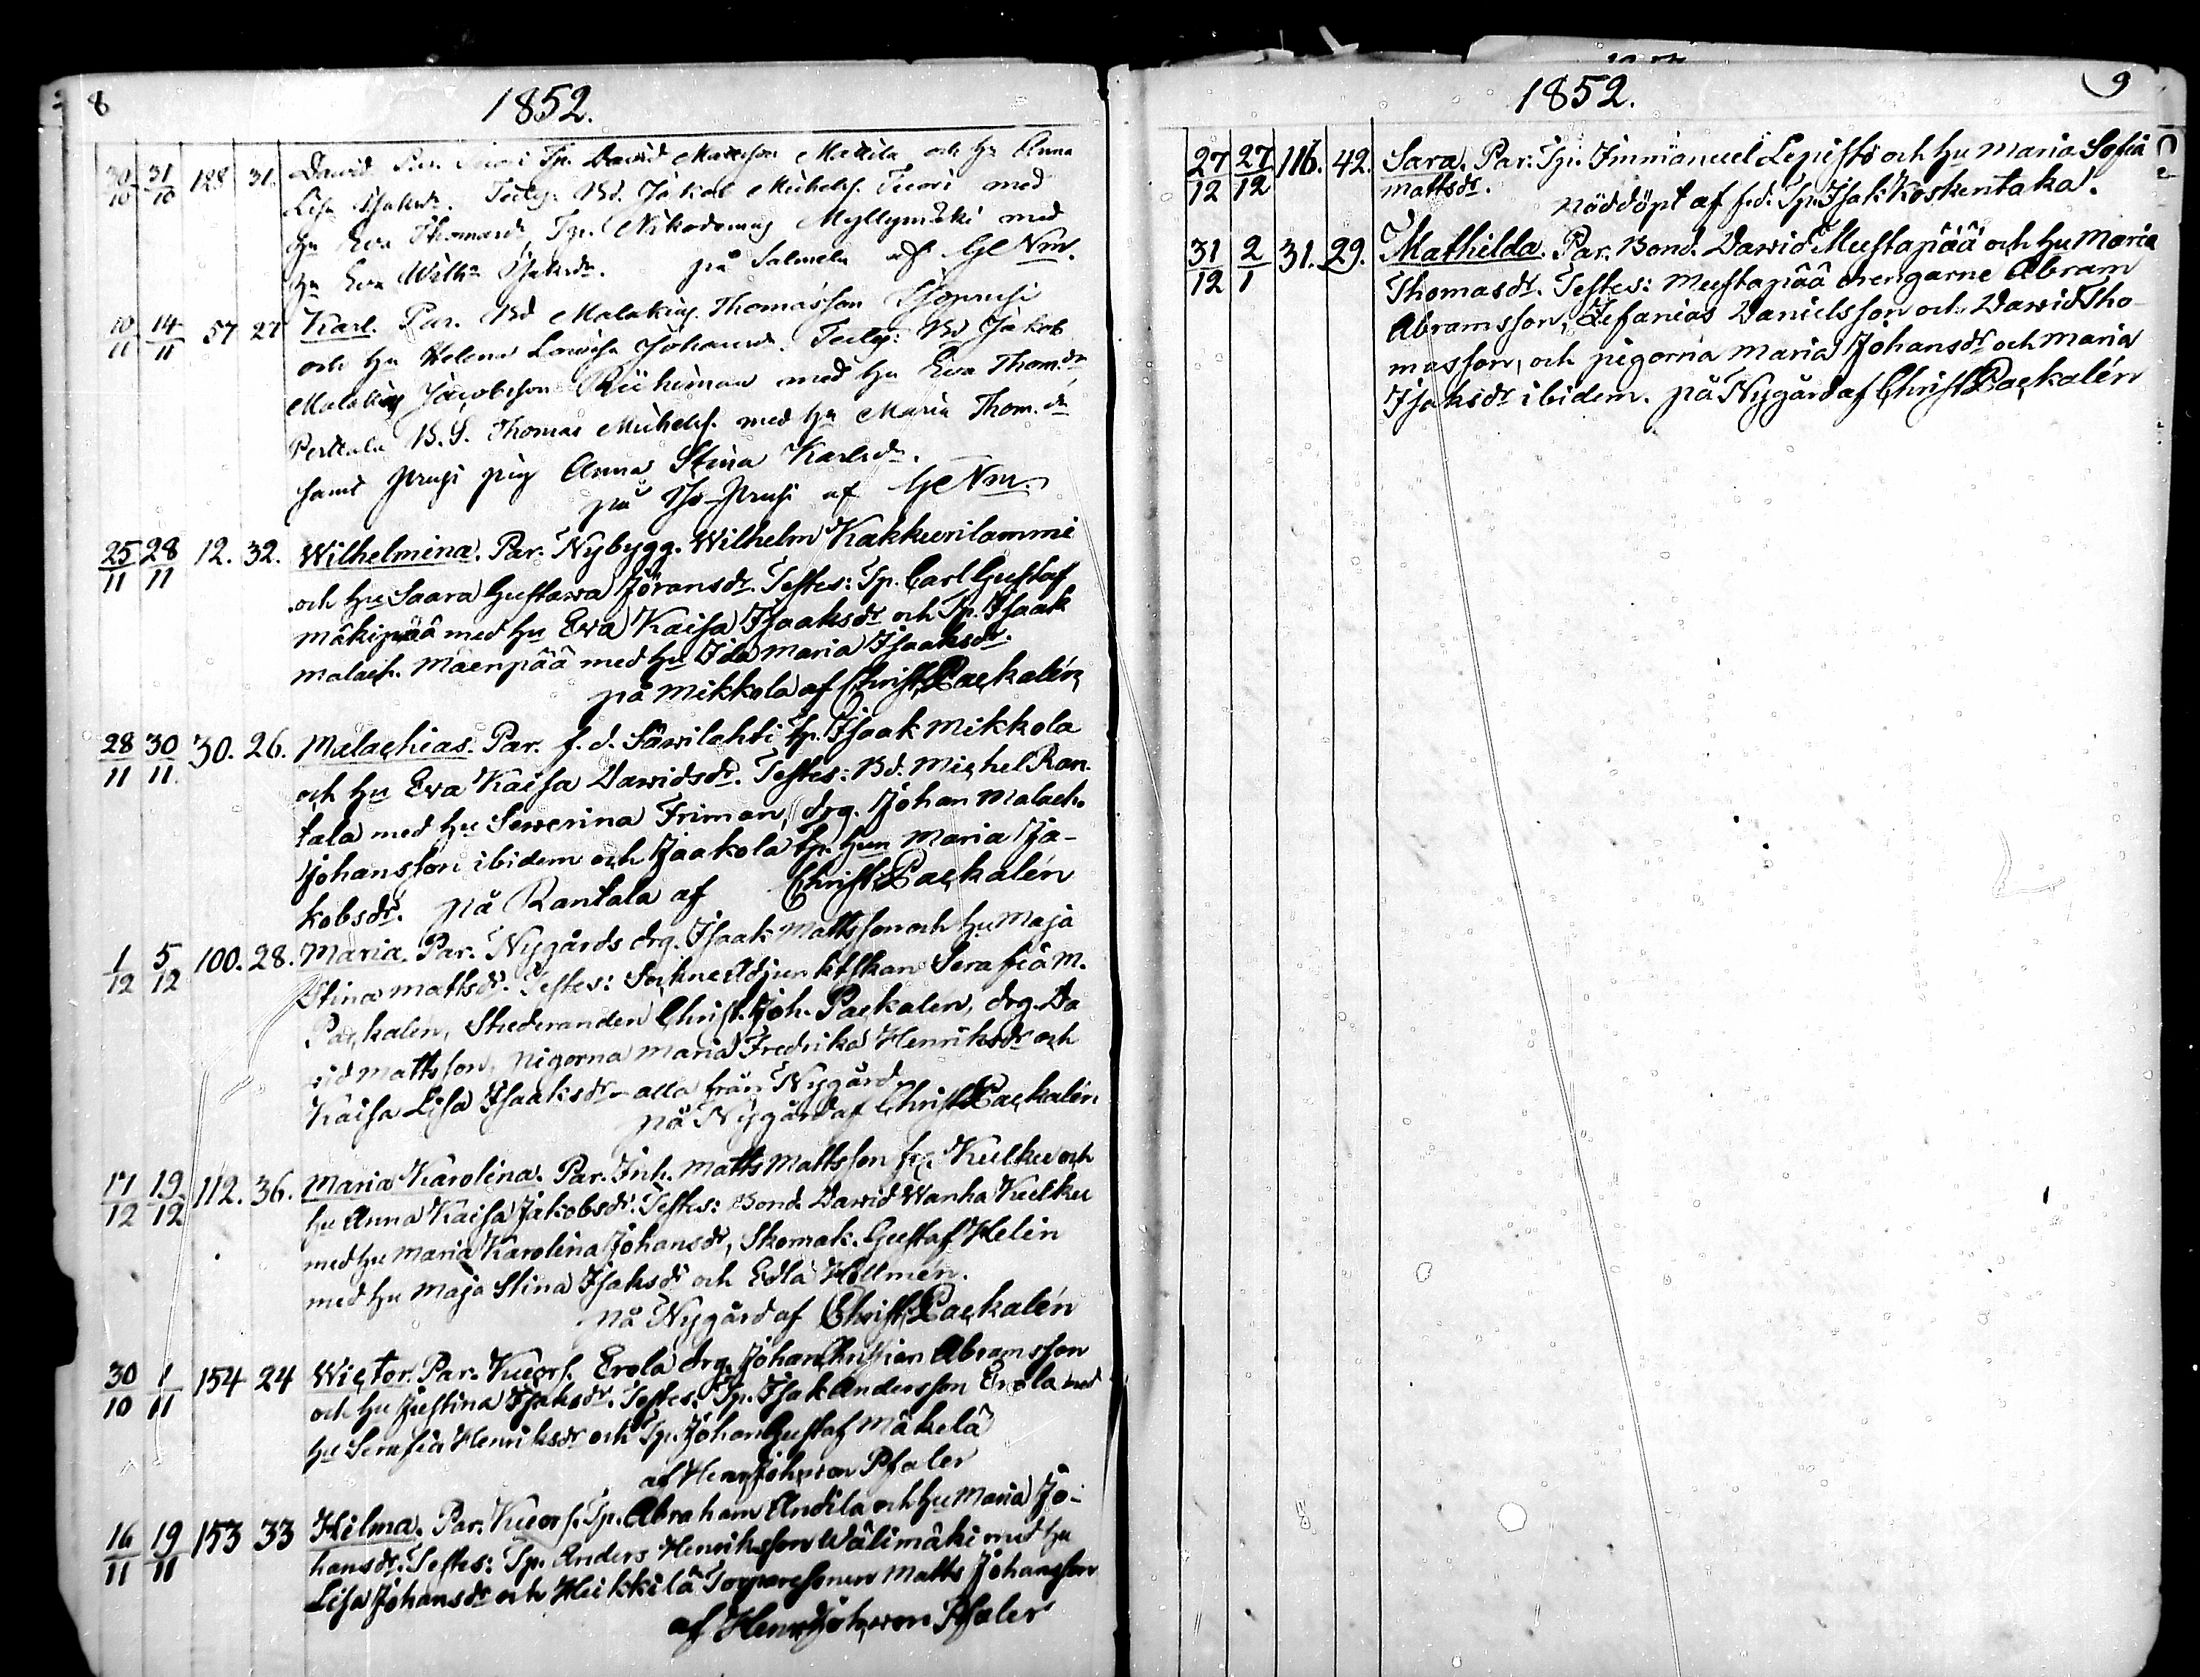 8
1852.
30/10 31/10 128 31. David Par. Tp. David Mattsson Mattila och hu Anna
Lisa Isaksdr. Testes: Bd. Jakob Michelss. Tuori med
hu Eva Thomasdr, Tp. Nikodemus Myllymäki med
hu Eva Wilh:a Isaksdr. på Salmela af GCNm.
10/11 14/11 57 27 Karl. Par. Bd Malakias Thomasson
och hu Helena Lovisa Johansdr. Testes: Bd Jakob
Malakias Jacobsson med hu Eva Thom:dr
Perttula B.S. Thomas Michelss. med hu Maria Thom.dr
samt pig Anna Stina Karlsdr.
på af GCNm.
25/11 28/11 12. 32. Wilhelmina. Par. Nybygg. Wilhelm Kakkurilammi
och hu Saara Gustava Jöransdr. Testes: Tp. Carl Gustaf
Mäkipää med hu Eva Kaisa Isaaksdr och Tp. Isaak
Malach. Mäenpää med hu Ida Maria Isaaksdr.
på Mikkola af Christ. Packalén
28/11 30/11. 30. 26. Malachias. Par. f.d. Sävilahti tp. Isaak Mikkola
och hu Eva Kaisa Davidsdr. Testes: Bd. Michel Ran-
tala med hu Severina Friman, drg. Johan Malach.
Johansson ibidem och Jaakola tp. hun Maria Ja-
kobsdr. på Rantala af Christ. Packalén
1/12 5/12 100. 28. Maria. Par. Nygårds drg. Isaak Mattsson och hu Maja
Stina Mattsdr. Testes: Sockneadjunktskan Serafia M.
Packalen, Studeranden Christ. Joh. Packalen, drg. Da
vid Mattsson, pigorna Maria Fredrika Henriksdr och
Kaisa Lisa Isaaksdr - alla från Nygård
på Nygård af Christ. Packalén
17/12 19/12 112. 36. Maria Karolina. Par. Inh. Matts Mattsson fr. Kulku och
hu Anna Kaisa Jakobsdr. Testes: Bond. David Wanha Kulku
med hu Maria Karolina Johansdr, Skomak. Gustaf Helin
med hu Maja Stina Isaksdr och Edla Hollmén.
på Nygård af Christ. Packalén
30/10 1/11 154 24 Wictor. Par. Kuors. Erola drg. Johan Christian Abramsson
och hu Justina Isaksdr. Testes: Tp. Isak Andersson Erola med
hu Serafia Henriksdr och Tp. Johan Gustaf Mäkelä
af Henr. Joh. von Pfaler
16/11 19/11 153 33 Hilma. Par. Kuors. Tp. Abraham Anttila och hu Maria Jo-
hansdr. Testes: Tp. Anders Henriksson Wälimäki med hu
Lisa Johansdr och Heikkilä Torparesonen Matts Johansson
af Henr. Joh. von Pfaler
9
1852.
27/12 27/12 116. 42. Sara. Par: Tp. Immanuel Lepistö och hu Maria Sofia
Mattsdr. nöddöpt af f.d. Tp. Isak Koskentaka.
31/12 2/1 31. 29. Mathilda. Par. Bond. David Mustapää och hu Maria
Thomasdr. Testes: Mustapää drengarne Abram
Abramsson, Zefanias Danielsson och David Tho-
masson, och pigorna Maria Johansdr och Maria
Isaksdr ibidem. på Nygård af Christ. Packalén